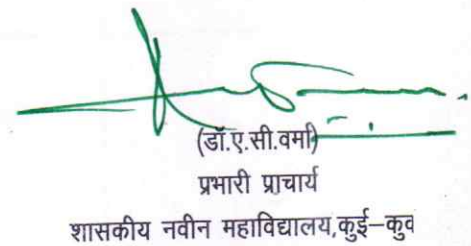 (डॉ.ए.सी.वर्मा)
प्रभारी प्राचार्य
शासकीय नवीन महाविद्यालय,कुई–कुव